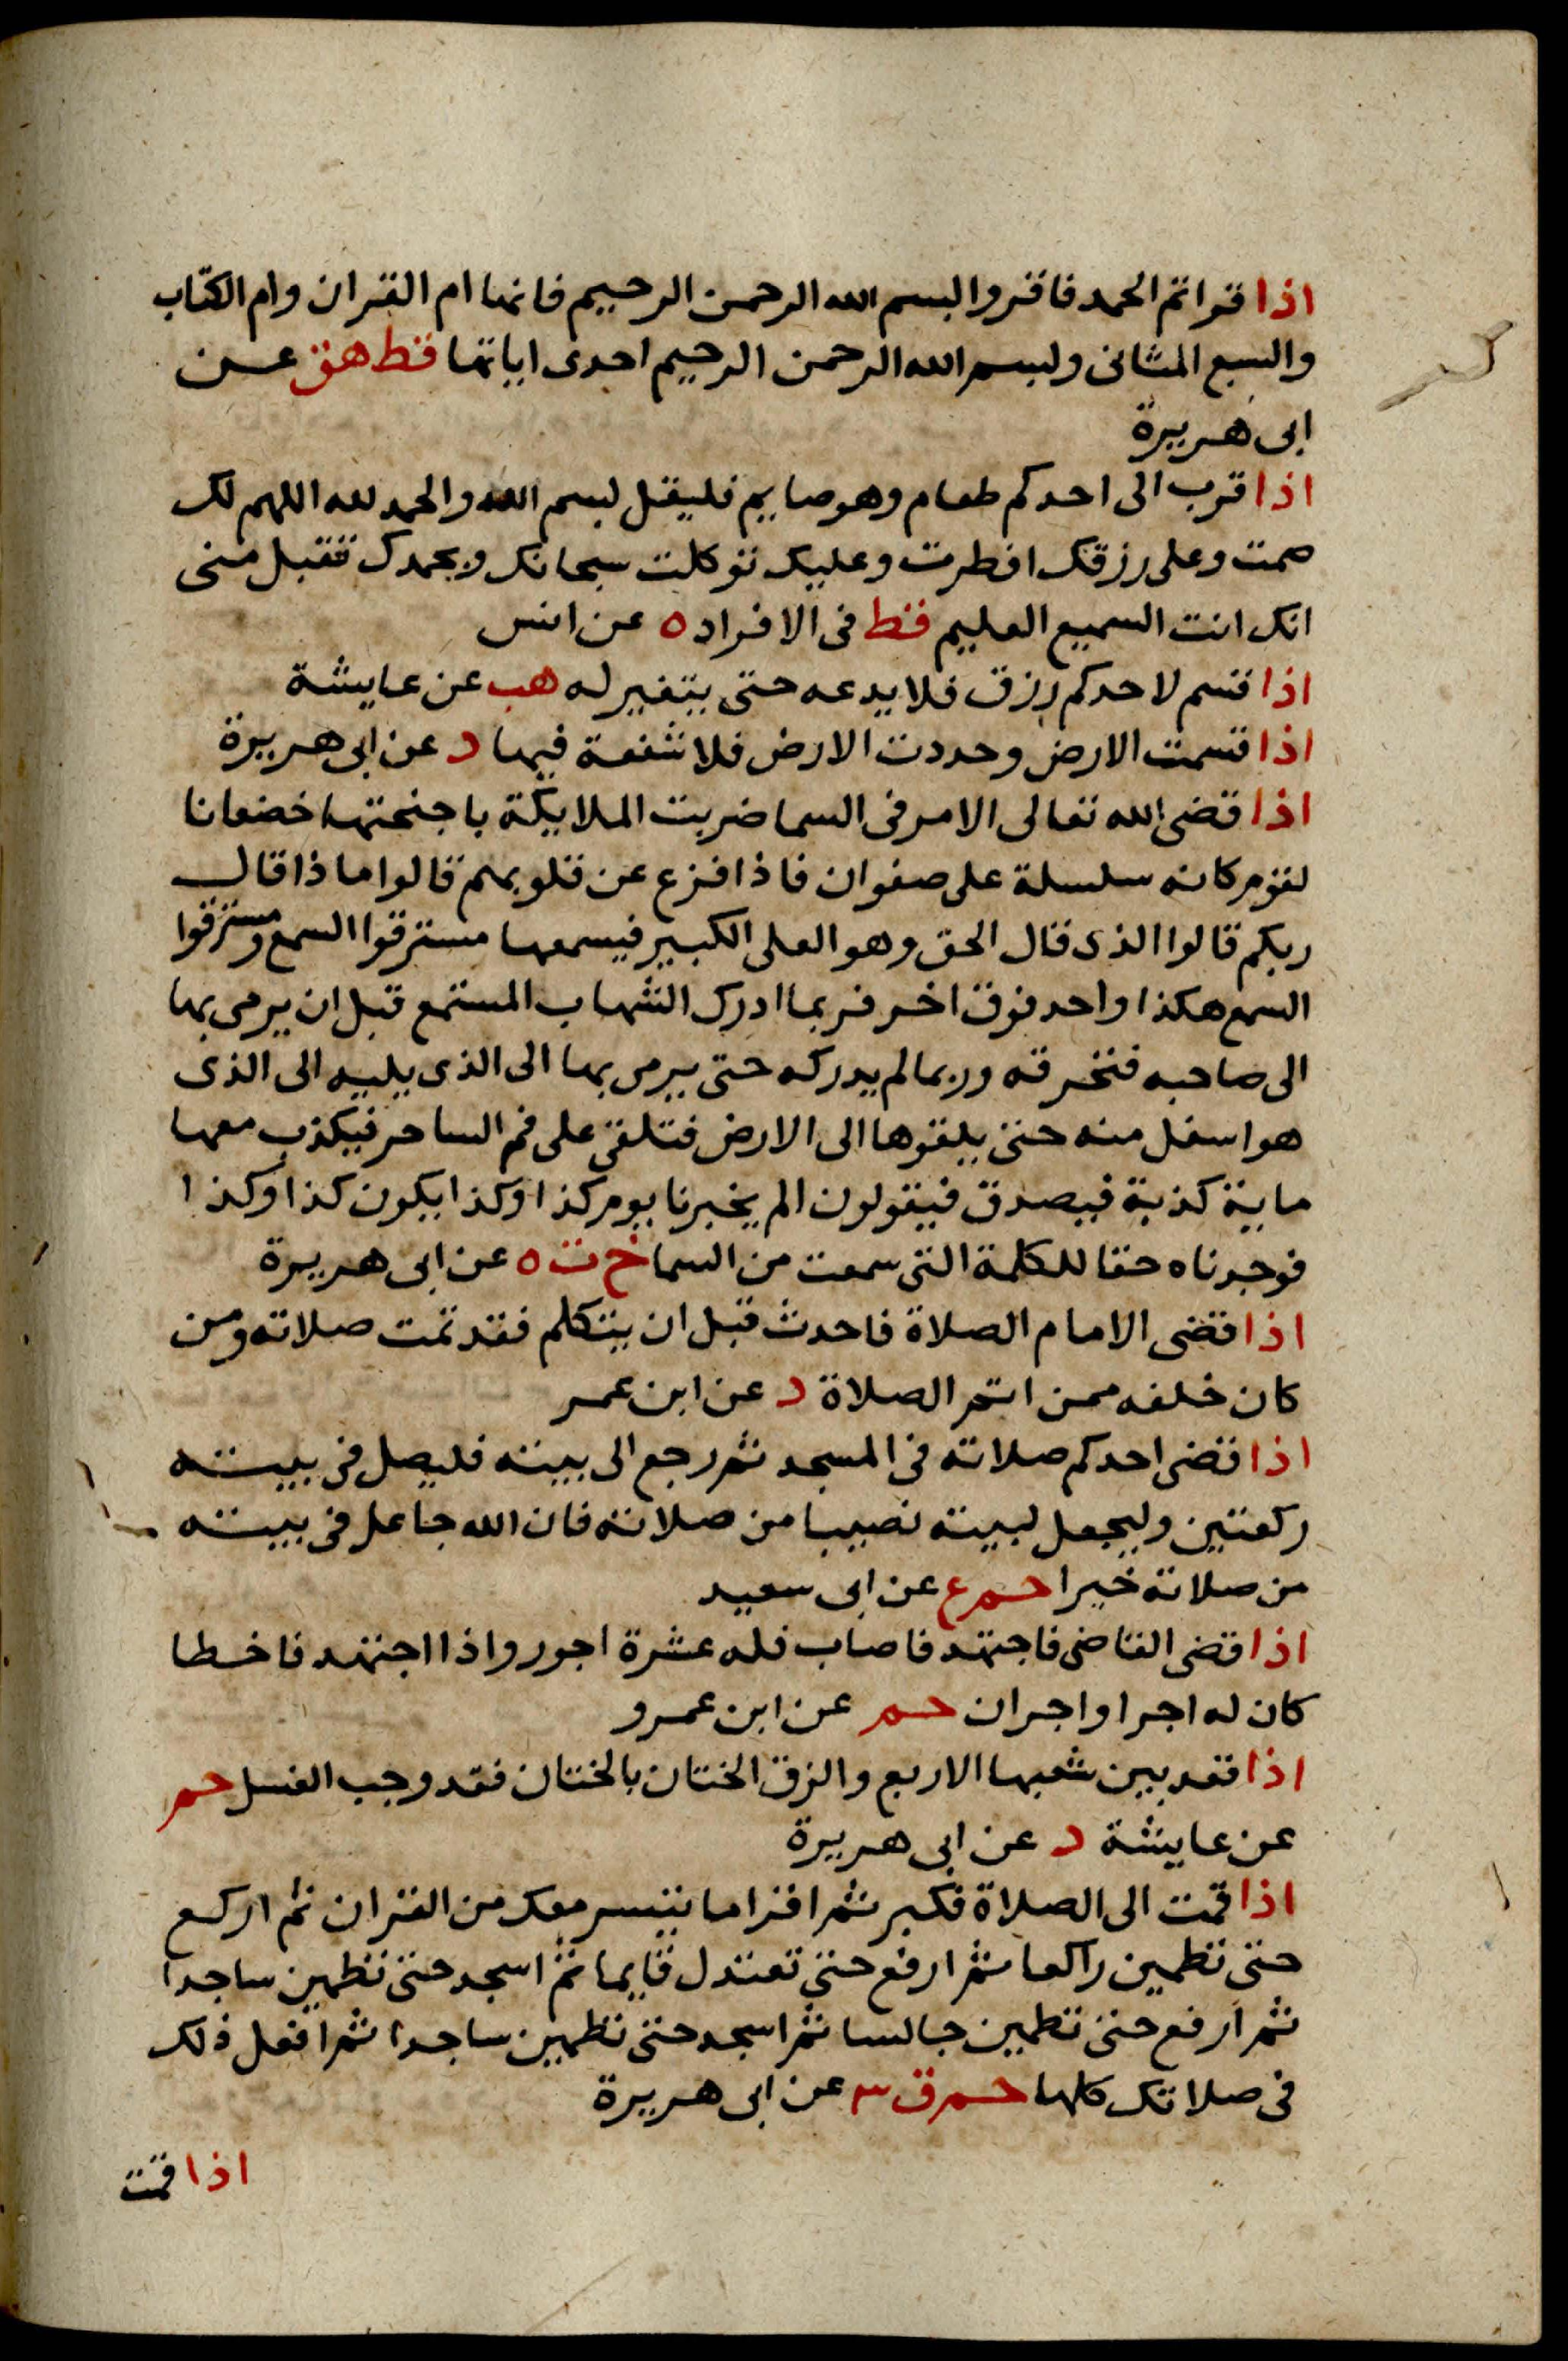 اذا قراتم الحمد فاقروا بسم الله الرحمن الرحيم فانها ام القران وام الكتاب
والسبع المثانى وبسم الله الرحمن الرحيم احدى اياتها قط هق عن
ابى هريرة
اذا قرب الى احدكم طعام وهو صايم فليقل بسم الله والحمد لله اللهم لك
صمت وعلى رزقك افطرت وعليك توكلت سبحانك وبحمدك تقبل منى
انك انت السميع العليم قط فى الافراد ه عن انس
اذا قسم لاحدكم رزق فلا يدعه حتى يتغير له هب عن عايشة
اذا قسمت الارض وحددت الارض فلا شفعة فيها د عن ابى هريرة
اذا قضى الله تعالى الامر فى السما ضربت الملايكة باجنحتها خضعانا
لقوم كانه سلسلة على صفوان فاذا فزع عن قلوبهم قالوا ماذا قال
ربكم قالوا الذى قال الحق وهو العلى الكبير فيسمعها مسترقوا السمع ومسترقوا
السمع هكذا واحد فوق اخر فربما ادرك الشهاب المستمع قبل ان يرمى بها
الى صاحبه فتحرقه وربما لم يدركه حتى يرمى بها الى الذى يليه الى الذى
هو اسفل منه حتى يلقوها الى الارض فتلقى على فم الساحر فيكذب معها
ماية كذبة فيصدق فيقولون الم يخبرنا يوم كذا وكذا يكون كذا وكذا
فوجدناه حقا للكلمة التى سمعت من السما خ ت ه عن ابى هريرة
اذا قضى الامام الصلاة فاحدث قبل ان يتكلم فقد تمت صلاته ومن
كان خلفه ممن اتم الصلاة د عن ابن عمر
اذا قضى احدكم صلاته فى المسجد ثم رجع الى بيته فليصل فى بيته
ركعتين وليجعل لبيته نصيبا من صلاته فان الله جاعل فى بيته
من صلاته خيرا حم ع عن ابى سعيد
اذا قضى القاضى فاجتهد فاصاب فله عشرة اجور واذا اجتهد فاخطا
كان له اجر او اجران حم عن ابن عمرو
اذا قعد بين شعبها الاربع والزق الختان بالختان فقد وجب الغسل حم
عن عايشة د عن ابى هريرة
اذا قمت الى الصلاة فكبر ثم اقرا ما تيسر معك من القران ثم اركع
حتى تطمين راكعا ثم ارفع حتى تعتدل قايما ثم اسجد حتى تطمين ساجدا
ثم ارفع حتى تطمين جالسا ثم اسجد حتى تطمين ساجدا ثم افعل ذلك
فى صلاتك كلها حم ق ٣ عن ابى هريرة
اذا قمت